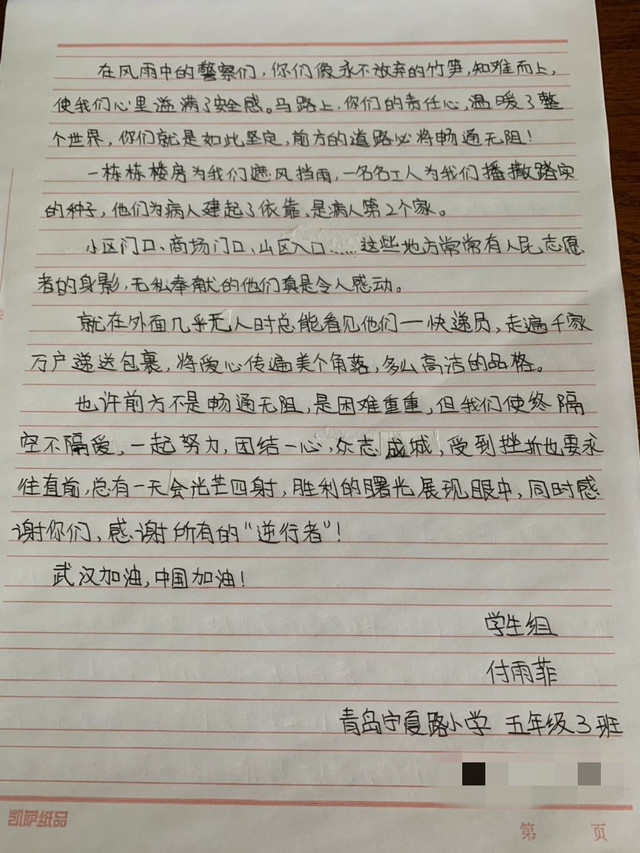 在风雨中的警察们，你们像永不放弃的竹笋，知难而上，
使我们心里溢满了安全感。马路上，你们的责任心，温暖了整
个世界，你们就是如此坚定，前方的道路必将畅通无阻！
一栋栋楼房为我们遮风挡雨，一名名工人为我们播撒踏实
的种子，他们为病人建起了依靠，是病人第2个家。
小区门口、商场门口、山区入口……这些地方常常有人民志愿
者的身影，无私奉献的他们真是令人感动。
就在外面几乎无人时总能看见他们一快递员，走遍千家
万户递送包裹，将爱心传遍美个角落，多么高洁的品格。
也许前方不是畅通无阻，是困难重重，但我们使终隔
空不隔爱，一起努力，团结一心，众志成城，受到挫折也要永
往直前，总有一天会光芒四射，胜利的曙光展现眼中，同时感
谢你们，感谢所有的“逆行者”！
武汉加油，中国加油！
学生组
付雨菲
青岛宁夏路小学 五年级3班
凯萨纸品
第 页